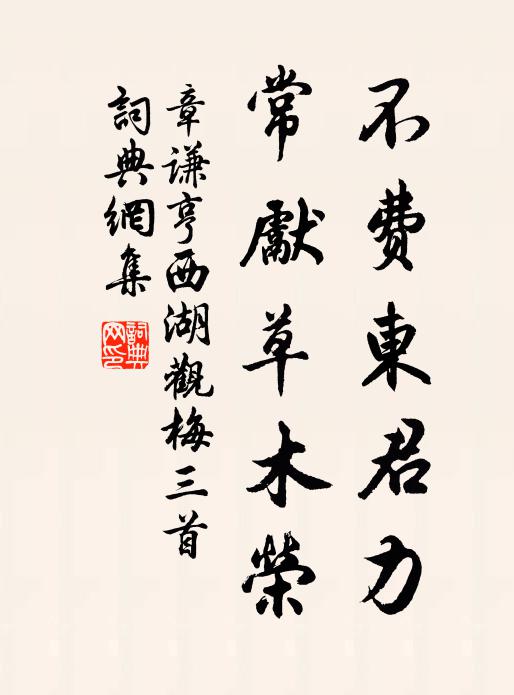 不费東君力
常獻草木榮
章谦亨西湖觀梅三首
詞典網集
詞典網印